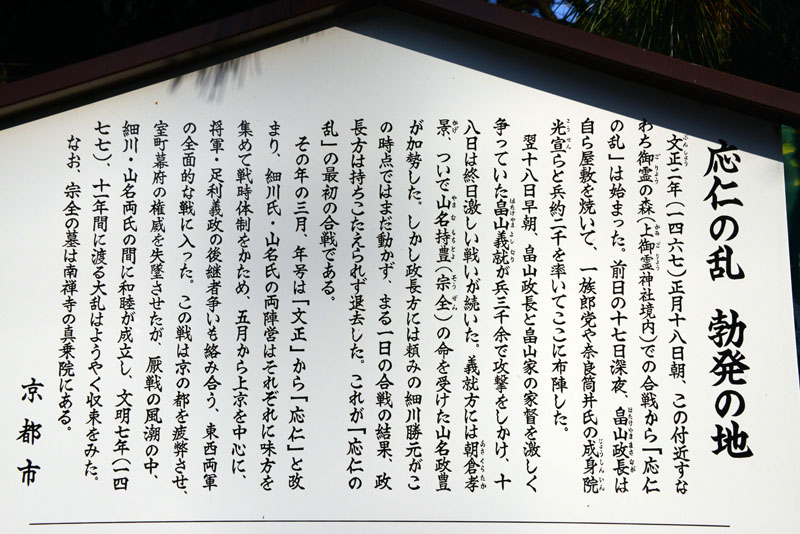 応仁の乱　勃発の地
文正二年（一四六七）正月十八日朝、この付近すな
わち御霊の森（上御霊神社境内）での合戦から「応仁
の乱」は始まった。前日の十七日深夜、畠山政長は
自ら屋敷を焼いて、一族郎党や奈良筒井氏の成身院
光宣らと兵約二千を率いてここに布陣した。
翌十八日早朝、畠山政長と畠山家の家督を激しく
争っていた畠山義就が兵三千余で攻撃をしかけ、十
八日は終日激しい戦いが続いた。義就方には朝倉孝
景、ついで山名持豊（宗全）の命を受けた山名政豊
が加勢した。しかし政長方には頼みの細川勝元がこ
の時点ではまだ動かず、まる一日の合戦の結果、政
長方は持ちこたえられず退去した。これが「応仁の
乱」の最初の合戦である。
その年の三月、年号は「文正」から「応仁」と改
まり、細川氏・山名氏の両陣営はそれぞれに味方を
集めて戦時体制をかため、五月から上京を中心に、
将軍・足利義政の後継者争いも絡み合う、東西両軍
の全面的な戦に入った。この戦は京の都を疲弊させ、
室町幕府の権威を失墜させたが、厭戦の風潮の中、
細川・山名両氏の間に和睦が成立し、文明七年（一四
七七）、十一年間に渡る大乱はようやく収束をみた。
なお、宗全の墓は南禅寺の真乗院にある。
京都市